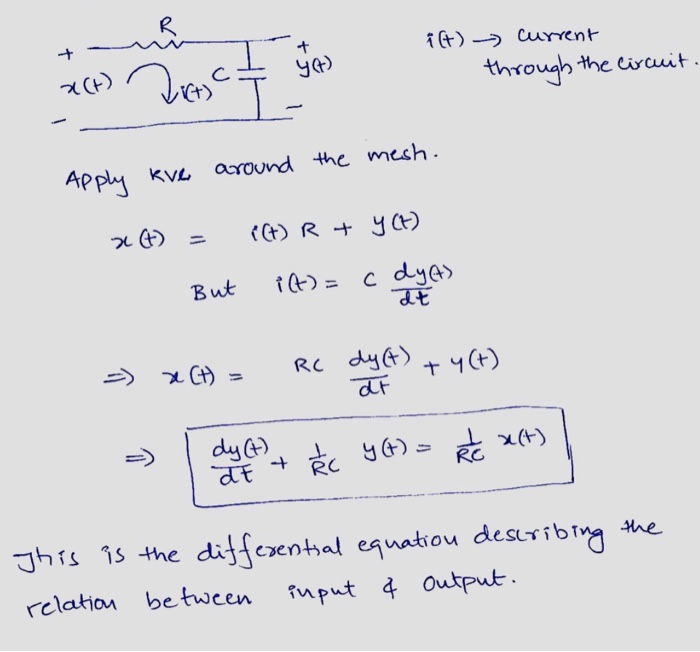 R
+ +
x(t) i(t) C y(t)
- -
i(t) → current
through the circuit.
Apply KVL around the mesh.
x(t) = i(t) R + y(t)
But i(t) = C dy(t)/dt
⇒ x(t) = RC dy(t)/dt + y(t)
⇒ dy(t)/dt + 1/RC y(t) = 1/RC x(t)
This is the differential equation describing the
relation between input & output.